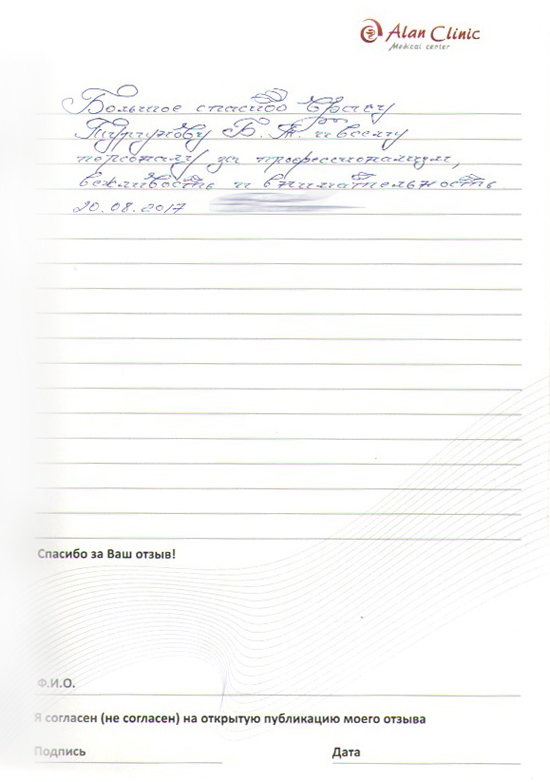 Alan Clinic
Medical center
Большое спасибо врачу
Пурпунову Б. Т. и всему
персоналу за профессионализм,
вежливость и внимательность
20.08.2017
Спасибо за Ваш отзыв!
Ф.И.О.
Я согласен (не согласен) на открытую публикацию моего отзыва
Подпись Дата